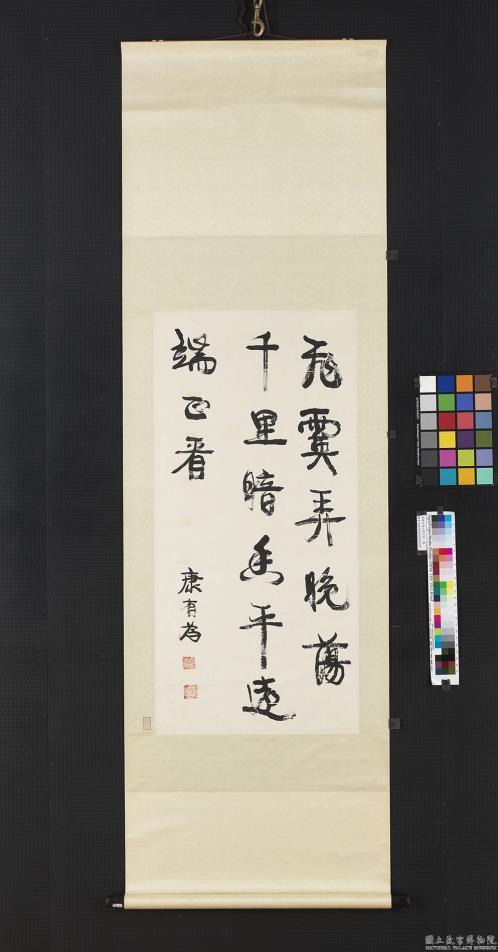 飛霙弄晚蕩
千里暗香平遠
端正看
康有為
國立故宮博物院
NATIONAL PALACE MUSEUM